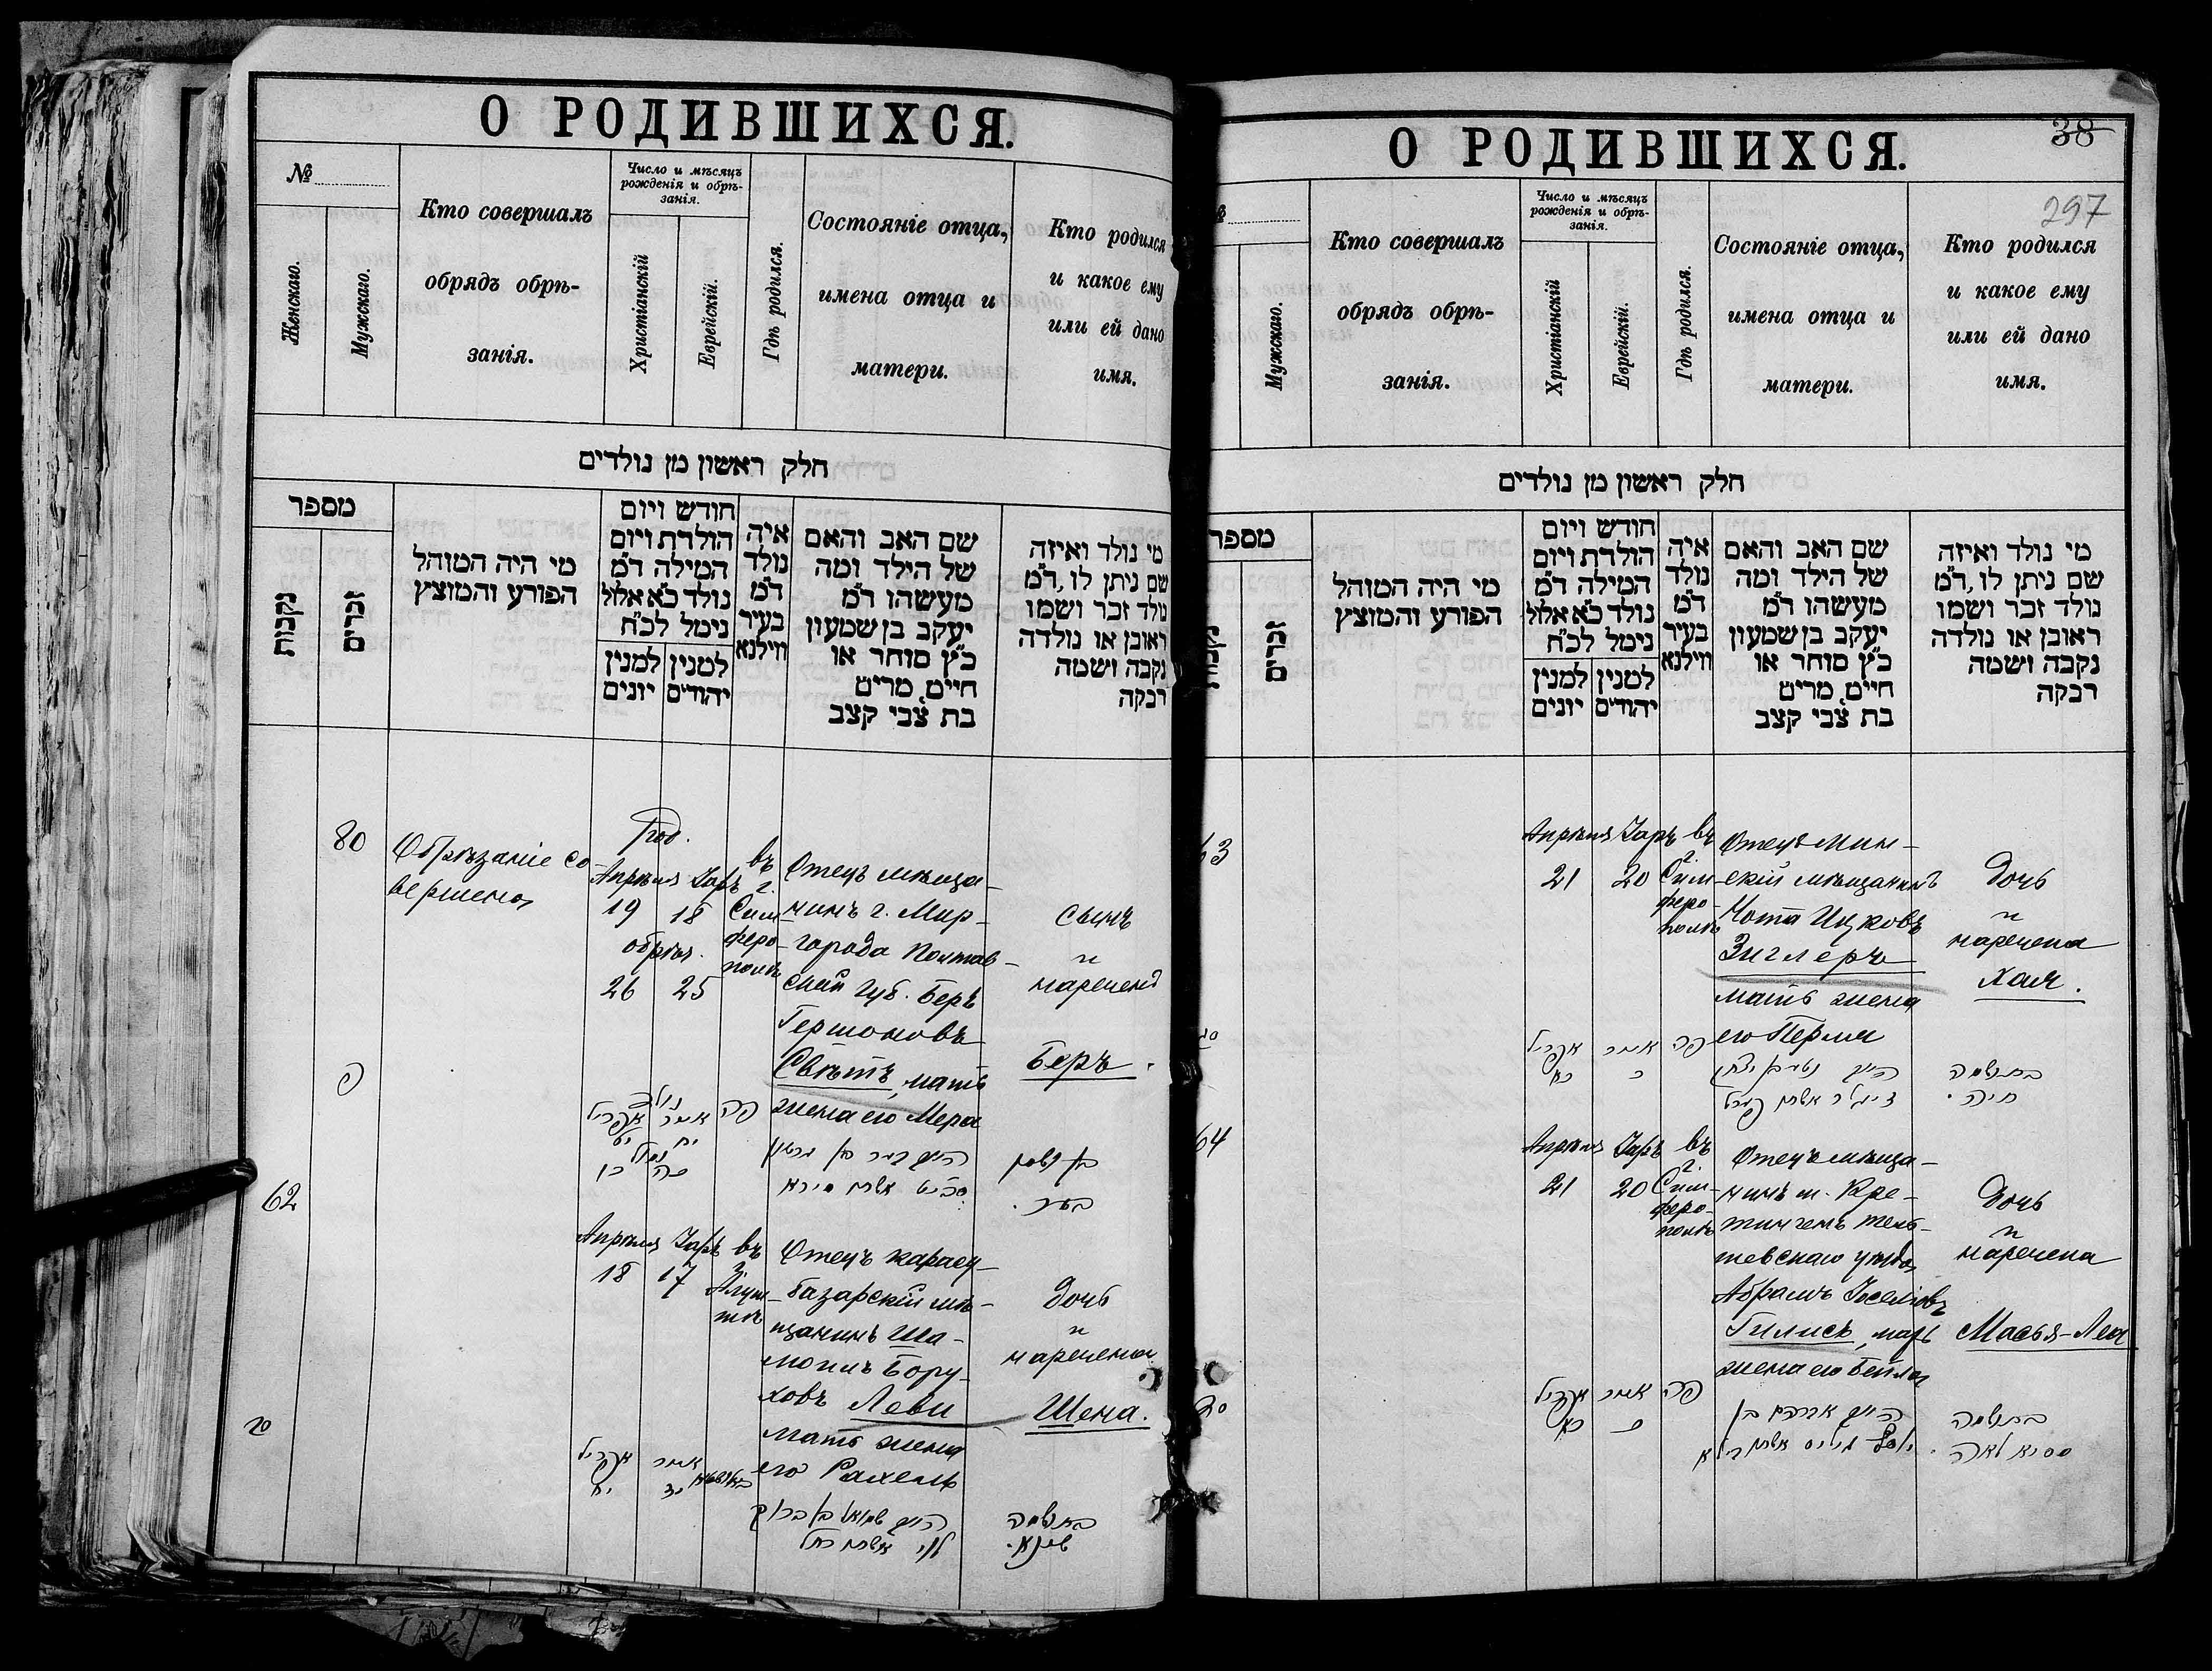 О РОДИВШИХСЯ.
№
Женскаго.
Мужскаго.
Кто совершалъ
обрядъ обрѣ-
занія.
Число и мѣсяцъ
рожденія и обрѣ-
занія.
Христіанскій
Еврейскій.
Гдѣ родился.
Состояніе отца,
имена отца и
матери.
Кто родился
и какое ему
или ей дано
имя.
חלק ראשון מן נולדים
מספר
נקבות
זכרים
מי היה המוהל
הפורע והמוצץ
חודש ויום
הולדת ויום
המילה ד״מ
נולד כ״א אלול
נימל לכ״ח
למנין יונים
למנין יהודים
איה
נולד
ד״מ
בעיר
ווילנא
שם האב והאם
של הילד ומה
מעשהו ד״מ
יעקב בן שמעון
כ״ץ סוחר או
חיים, מרים
בת צבי קצב
מי נולד ואיזה
שם ניתן לו, ד״מ
נולד זכר ושמו
ראובן או נולדה
נקבה ושמה
רבקה
80
Обрѣзаніе со-
вершено
Род.
Апрѣля Іаръ
19 18
обрѣз.
26 25
въ
г.
Сим-
феро-
полѣ
Отецъ мѣща-
нинъ г. Мир-
города Полтав-
ской губ. Беръ
Гершоновъ
Свѣтъ, мать
жена его Мера
сынъ
и
нареченъ
Беръ.
פ
נולד
אפריל אייר פה
יט יח
נימול
כו כה
62
Апрѣля Іаръ въ
18 17
г.
Алуш-
тѣ
Отецъ карасу-
базарскій мѣ-
щанинъ Ша-
моилъ Бору-
ховъ Леви
мать жена
его Рахель
дочь
и
наречена
Шена.
אפריל אייר
יח יז
שמואל בן ברוך
לוי
О РОДИВШИХСЯ.
38
297
Мужскаго.
Кто совершалъ
обрядъ обрѣ-
занія.
Число и мѣсяцъ
рожденія и обрѣ-
занія.
Христіанскій
Еврейскій.
Гдѣ родился.
Состояніе отца,
имена отца и
матери.
Кто родился
и какое ему
или ей дано
имя.
חלק ראשון מן נולדים
מספר
זכרים
מי היה המוהל
הפורע והמוצץ
חודש ויום
הולדת ויום
המילה ד״מ
נולד כ״א אלול
נימל לכ״ח
למנין יונים
למנין יהודים
איה
נולד
ד״מ
בעיר
ווילנא
שם האב והאם
של הילד ומה
מעשהו ד״מ
יעקב בן שמעון
כ״ץ סוחר או
חיים, מרים
בת צבי קצב
מי נולד ואיזה
שם ניתן לו, ד״מ
נולד זכר ושמו
ראובן או נולדה
נקבה ושמה
רבקה
63
Апрѣля Іаръ въ
21 20
г.
Сим-
феро-
полѣ
Отецъ Мин-
скій мѣщанинъ
Нота Ицковъ
Зиглеръ
мать жена
его Перля
дочь
и
наречена
Хая.
אפריל אייר פה
כא כ
חיה.
64
Апрѣля Іаръ въ
21 20
г.
Сим-
феро-
полѣ
Отецъ мѣща-
нинъ м. Кре-
тингенъ Тель-
шевскаго уѣзда
Абрамъ Іоселіовъ
Гилисъ, мать
жена его Бейла
дочь
и
наречена
Масья-Леа
אפריל אייר פה
כא כ
אברהם בן
יוסף גיליס
מסיא לאה